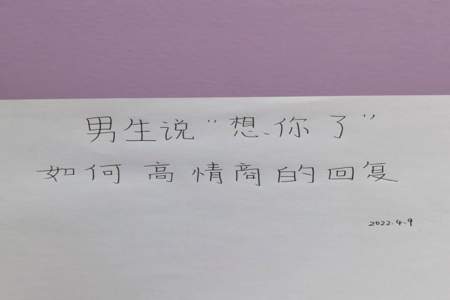 男生说“想你了”
如何高情商的回复
2022.4.9